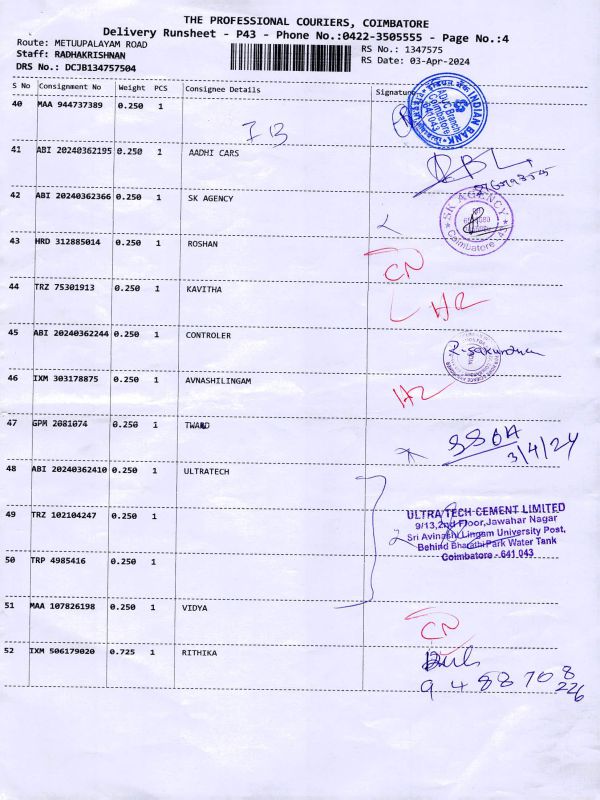 THE PROFESSIONAL COURIERS, COIMBATORE
Delivery Runsheet - P43 - Phone No.:0422-3505555 - Page No.:4
Route: METUUPALAYAM ROAD
RS No.: 1347575
Staff: RADHAKRISHNAN
RS Date: 03-Apr-2024
DRS No.: DCJB134757504
S No Consignment No Weight PCS Consignee Details Signature
40 MAA 944737389 0.250 1
IB
INDIAN BANK
ADVC Branch
Coimbatore
641 043
41 ABI 20240362195 0.250 1 AADHI CARS
42 ABI 20240362366 0.250 1 SK AGENCY
SK AGENCY
Coimbatore
43 HRD 312885014 0.250 1 ROSHAN
CN
44 TRZ 75301913 0.250 1 KAVITHA
HR
45 ABI 20240362244 0.250 1 CONTROLER
46 IXM 303178875 0.250 1 AVNASHILINGAM
47 GPM 2081074 0.250 1 TWARD
3/4/24
48 ABI 20240362410 0.250 1 ULTRATECH
49 TRZ 102104247 0.250 1
ULTRA TECH CEMENT LIMITED
9/13, 2nd Floor, Jawahar Nagar
Sri Avinashi Lingam University Post,
Behind Bharathi Park Water Tank
Coimbatore - 641 043
50 TRP 4985416 0.250 1
51 MAA 107826198 0.250 1 VIDYA
CN
52 IXM 506179020 0.725 1 RITHIKA
9488708
226